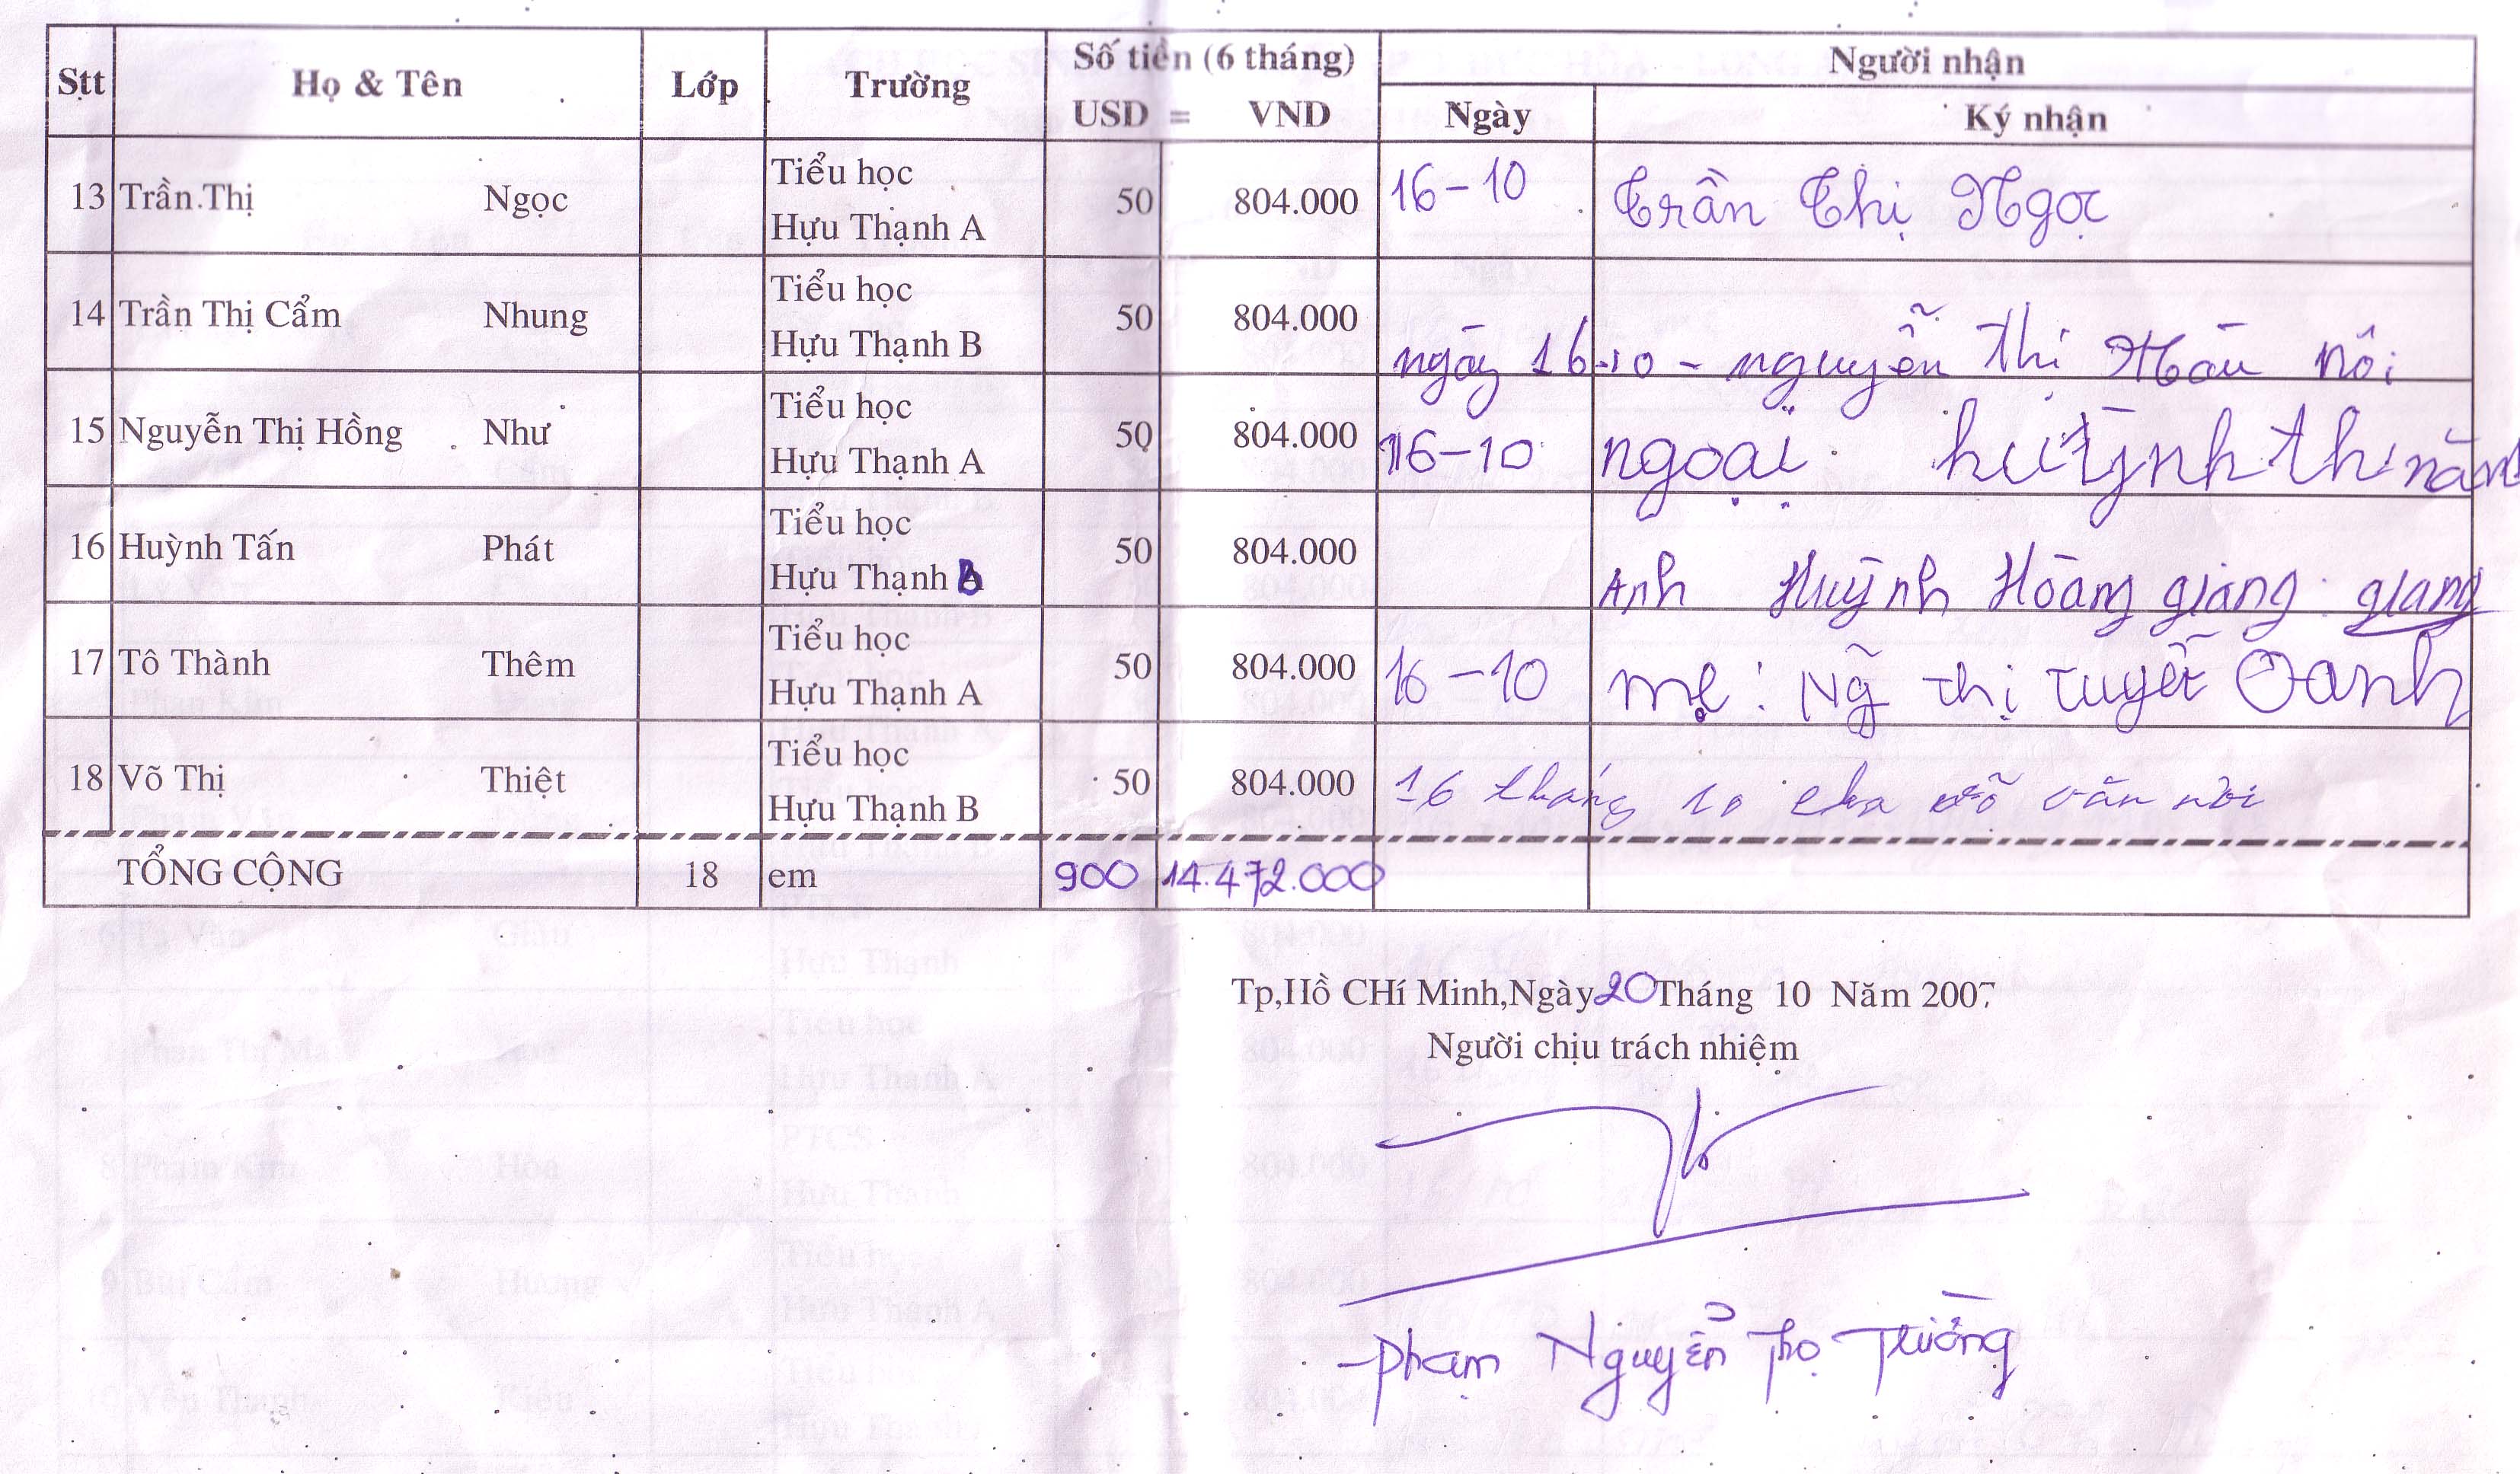 Stt Họ & Tên Lớp Trường Số tiền (6 tháng) Người nhận
USD = VND Ngày Ký nhận
Tiểu học
13 Trần Thị Ngọc 50 804.000 16-10 Trần Thị Ngọc
Hựu Thạnh A
Tiểu học
14 Trần Thị Cẩm Nhung 50 804.000
Hựu Thạnh B ngày 16-10 - nguyễn Thị nôi
Tiểu học
15 Nguyễn Thị Hồng Như 50 804.000 16-10 ngoại huỳnh thị năm
Hựu Thạnh A
Tiểu học
16 Huỳnh Tấn Phát 50 804.000
Hựu Thạnh B Anh Huỳnh Hoàng giang. giang
Tiểu học
17 Tô Thành Thêm 50 804.000 16-10 mẹ: Ng~ thị tuyết Oanh
Hựu Thạnh A
Tiểu học
18 Võ Thị Thiệt 50 804.000 16 tháng 10 cha võ văn nòi
Hựu Thạnh B
TỔNG CỘNG 18 em 900 14.472.000
Tp,Hồ CHí Minh,Ngày 20 Tháng 10 Năm 2007
Người chịu trách nhiệm
-Phạm Nguyễn Thọ Trường